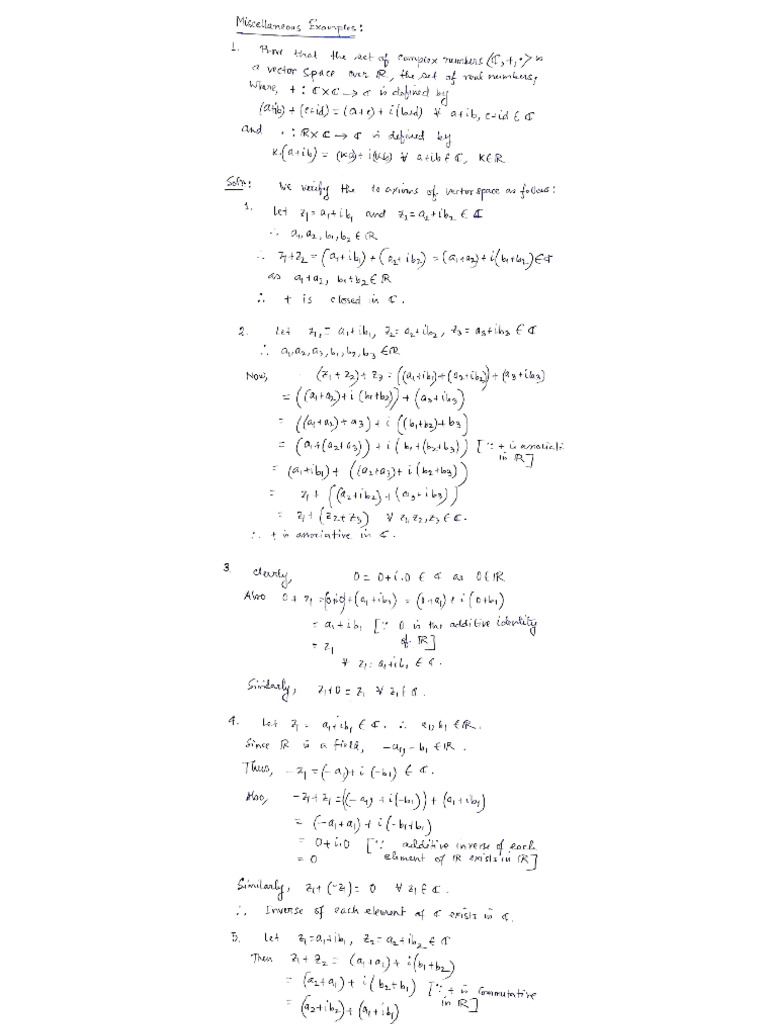 Miscellaneous Examples:
1. Prove that the set of complex numbers (ℂ, +, ·) is
a vector space over ℝ, the set of real numbers,
where, + : ℂ×ℂ → ℂ is defined by
(a+ib) + (c+id) = (a+c) + i(b+d) ∀ a+ib, c+id ∈ ℂ
and · : ℝ×ℂ → ℂ is defined by
k.(a+ib) = (ka)+i(kb) ∀ a+ib ∈ ℂ, k∈ℝ
Soln: We verify the 10 axioms of vector space as follows:
1. Let z₁ = a₁+ib₁ and z₂ = a₂+ib₂ ∈ ℂ
∴ a₁,a₂,b₁,b₂ ∈ ℝ
∴ z₁+z₂ = (a₁+ib₁) + (a₂+ib₂) = (a₁+a₂)+i(b₁+b₂) ∈ ℂ
as a₁+a₂, b₁+b₂ ∈ ℝ
∴ + is closed in ℂ.
2. Let z₁ = a₁+ib₁, z₂ = a₂+ib₂, z₃ = a₃+ib₃ ∈ ℂ
∴ a₁,a₂,a₃,b₁,b₂,b₃ ∈ℝ
Now, (z₁+z₂)+z₃ = ((a₁+ib₁)+(a₂+ib₂))+(a₃+ib₃)
= ((a₁+a₂)+i(b₁+b₂))+(a₃+ib₃)
= ((a₁+a₂)+a₃)+i((b₁+b₂)+b₃)
= (a₁+(a₂+a₃))+i(b₁+(b₂+b₃)) [∵ + is associati
in ℝ]
= (a₁+ib₁)+((a₂+a₃)+i(b₂+b₃))
= z₁+((a₂+ib₂)+(a₃+ib₃))
= z₁+(z₂+z₃) ∀ z₁,z₂,z₃ ∈ ℂ.
∴ + is associative in ℂ.
3. Clearly, 0 = 0+i.0 ∈ ℂ as 0∈ℝ
Also 0+z₁ = (0+i0)+(a₁+ib₁) = (0+a₁)+i(0+b₁)
= a₁+ib₁ [∵ 0 is the additive identity
of ℝ]
= z₁
∀ z₁=a₁+ib₁ ∈ ℂ.
Similarly, z₁+0 = z₁ ∀ z₁∈ ℂ.
4. Let z₁ = a₁+ib₁ ∈ ℂ. ∴ a₁,b₁ ∈ℝ.
Since ℝ is a field, -a₁,-b₁ ∈ℝ.
Thus, -z₁ = (-a₁)+i(-b₁) ∈ ℂ.
Also, -z₁+z₁ = ((-a₁)+i(-b₁))+(a₁+ib₁)
= (-a₁+a₁)+i(-b₁+b₁)
= 0+i.0 [∵ additive inverse of each
= 0 element of ℝ exists in ℝ]
Similarly, z₁+(-z₁) = 0 ∀ z₁∈ ℂ.
∴ Inverse of each element of ℂ exists in ℂ.
5. Let z₁=a₁+ib₁, z₂=a₂+ib₂ ∈ ℂ
Then z₁+z₂ = (a₁+a₂)+i(b₁+b₂)
= (a₂+a₁)+i(b₂+b₁) [∵ + is commutative
in ℝ]
= (a₂+ib₂)+(a₁+ib₁)